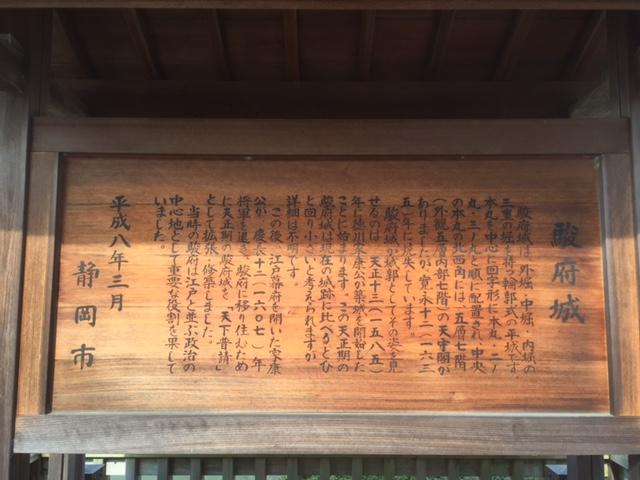 駿府城
駿府城は、外堀、中堀、内堀の
三重の堀を持つ輪郭式の平城です。
本丸を中心に回字形に本丸・二ノ
丸・三ノ丸と順に配置され、中央
の本丸の北西角には、五層七階
（外観五層内部七階）の天守閣が
ありましたが、寛永十二（一六三
五）年に焼失しています。
駿府城が城郭としてその姿を見
せるのは、天正十三（一五八五）
年に徳川家康公が築城を開始した
ことに始まります。この天正期の
駿府城は現在の城跡に比べるとひ
と回り小さいと考えられますが
詳細は不明です。
この後、江戸幕府を開いた家康
公が、慶長十二（一六〇七）年
将軍を退き、駿府に移り住むため
に天正期の駿府城を「天下普請」
として拡張、修築しました。
当時の駿府は江戸と並ぶ政治の
中心地として重要な役割を果して
いました。
平成八年三月
静岡市